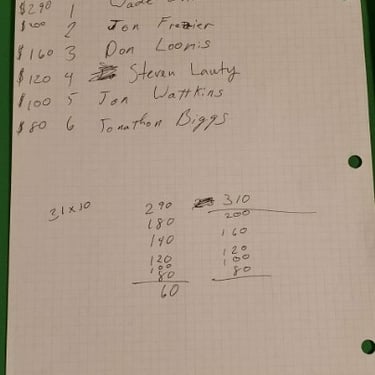 $290 1 Wade
$200 2 Jon Frezier
$160 3 Don Loomis
$120 4 Steven Lauty
$100 5 Jon Wattkins
$80 6 Jonathon Biggs
31x10 290 310
180 200
140 160
120 120
100 100
80 80
60